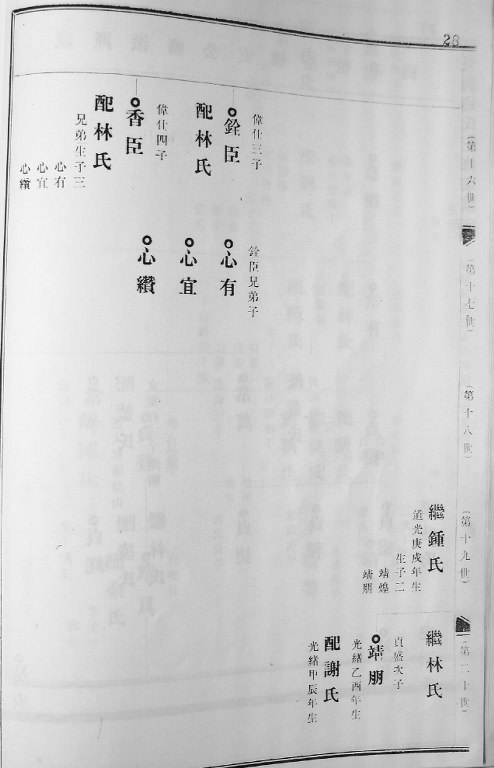 28
（第十六世）
（第十七世）
（第十八世）
（第十九世）
（第二十世）
偉仕三子
銓臣
配林氏
偉仕四子
香臣
配林氏
兄弟生子三
心有
心宜
心纘
銓臣兄弟子
心有
心宜
心纘
繼鍾氏
道光庚戌年生
生子二
靖煌
靖朋
繼林氏
貞盛次子
靖朋
光緒乙酉年生
配謝氏
光緒甲辰年生